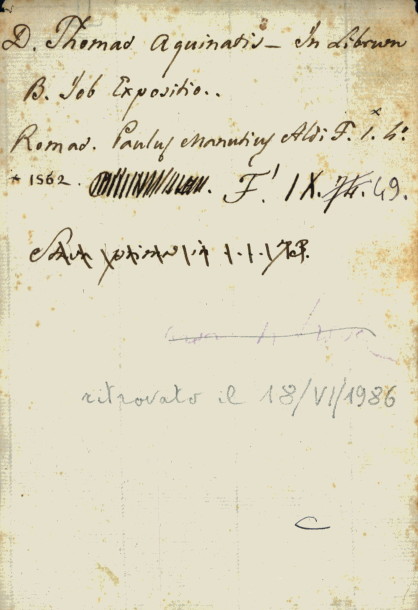 D. Thomas Aquinatis – In Librum
B. Job Expositio..
Romae. Paulus Manutius Aldi F. 1. 4º
* 1562. F' IX. 74. 49.
ritrovato il 18/VI/1986
C